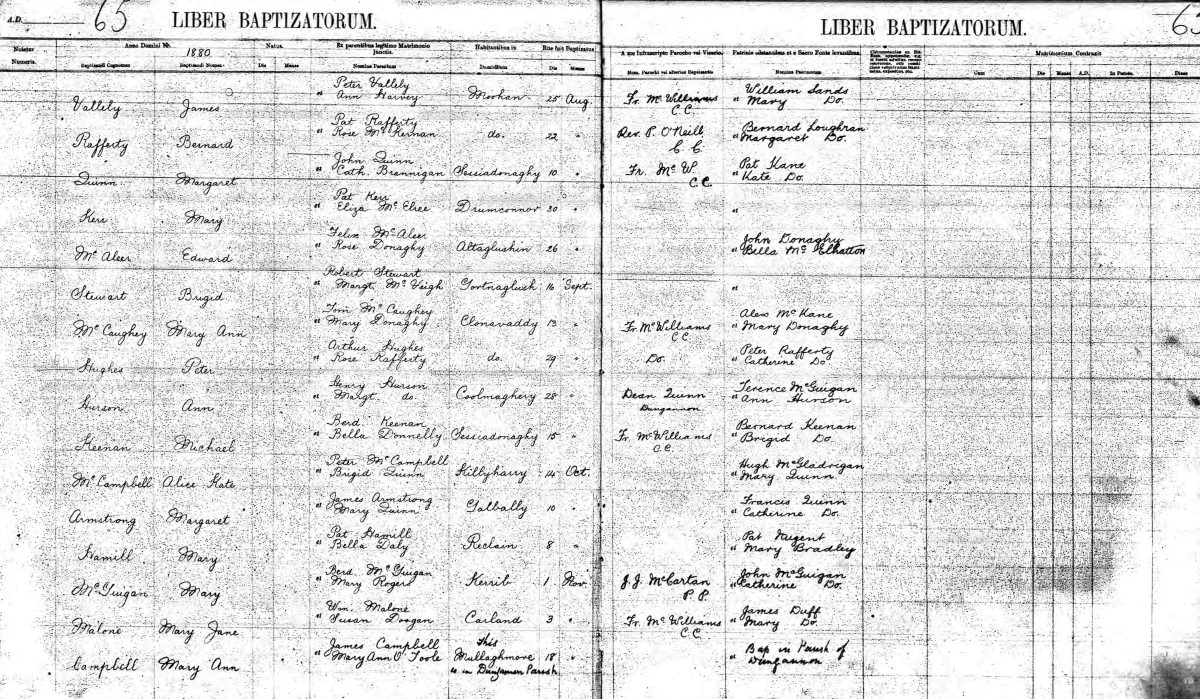 A.D. 65 LIBER BAPTIZATORUM.
Numerus
Anno Domini 1880
Baptizandi Cognomen Baptizandi Nomen
Natus
Die Mense
Ex parentibus legitimo Matrimonio junctis
Nomina Parentum
Habitantibus in
Domicilium
Rite fuit Baptizatus
Die Mense
Peter Vallely
Vallely James " Ann Harvey Moghan 25 Aug.
Pat Rafferty
Rafferty Bernard " Rose McKernan do. 22 "
John Quinn
Quinn Margaret " Cath. Brannigan Sessiadonaghy 10 "
Pat Kerr
Kerr Mary " Eliza McElree Drumconnor 30 "
Felix McAleer
McAleer Edward " Rose Donaghy Altaglushin 26 "
Robert Stewart
Stewart Brigid " Margt. McVeigh Gortnaglush 16 Sept.
Tom McCaughey
McCaughey Mary Ann " Mary Donaghy Clonavaddy 13 "
Arthur Hughes
Hughes Peter " Rose Rafferty do. 29 "
Henry Hurson
Hurson Ann " Margt. do. Coolmaghery 28 "
Berd. Keenan
Keenan Michael " Bella Donnelly Sessiadonaghy 15 "
Peter McCampbell
McCampbell Alice Kate " Brigid Quinn Killyharry 14 Oct.
James Armstrong
Armstrong Margaret " Mary Quinn Galbally 10 "
Pat Hamill
Hamill Mary " Bella Daly Reclain 8 "
Berd. McGuigan
McGuigan Mary " Mary Rogers Kerrib 1 Nov.
Wm. Malone
Malone Mary Jane " Susan Doogan Carland 3 "
James Campbell This
Campbell Mary Ann " Mary Ann O'Toole Mullaghmore 18 "
is in Dungannon Parish
LIBER BAPTIZATORUM. 65
A me Infrascripto Parocho vel Vicario,
Nom. Parochi vel alterius Baptizantis
Patrinis adstantibus et e Sacro Fonte levantibus.
Nomina Patrinorum
Matrimonium Contraxit
Cum Die Mense A.D. In Paroec. Dioec
William Sands
Fr. McWilliams C.C. " Mary Do.
Bernard Loughran
Rev. P. O'Neill C.C. " Margaret Do.
Pat Kane
Fr. McW. C.C. " Kate Do.
"
John Donaghy
" Bella McElhatton
"
Alex McKane
Fr. McWilliams C.C. " Mary Donaghy
Peter Rafferty
Do. " Catherine Do.
Terence McGuigan
Dean Quinn Dungannon " Ann Hurson
Bernard Keenan
Fr. McWilliams C.C. " Brigid Do.
Hugh McGladrigan
" Mary Quinn
Francis Quinn
" Catherine Do.
Pat Nugent
" Mary Bradley
John McGuigan
J.J. McCartan P.P. " Catherine Do.
James Duff
Fr. McWilliams C.C. " Mary Do.
" Bap in Parish of
Dungannon